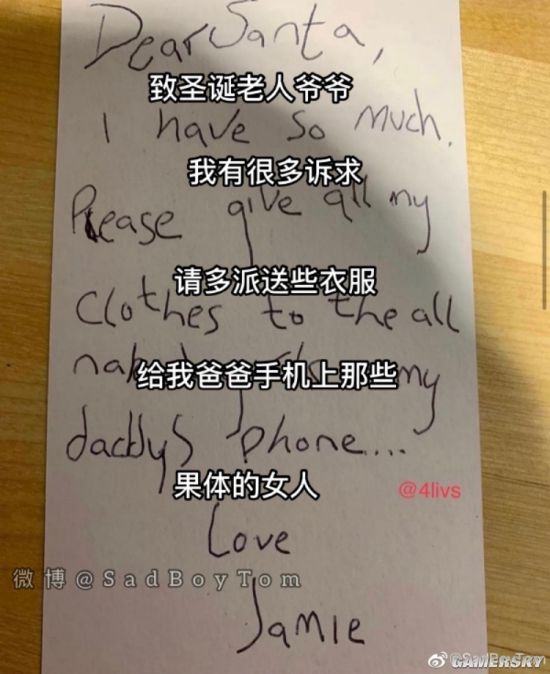 Dear Santa,
致圣诞老人爷爷
I have so much.
我有很多诉求
Please give all my
请多派送些衣服
clothes to the all
给我爸爸手机上那些
my
daddy's phone...
果体的女人
@4livs
Love
微博@SadBoyTom
Jamie
GAMERSKY